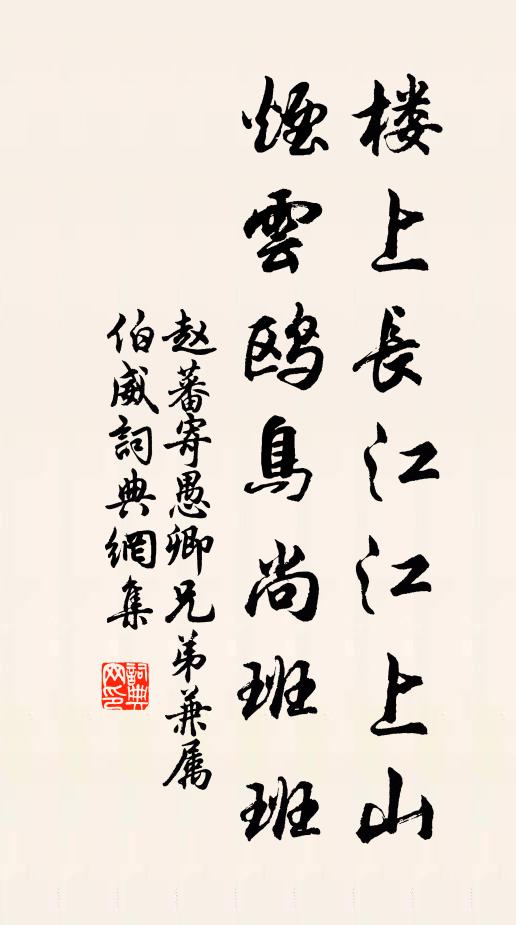 楼上長江江上山
煙雲鸥鳥尚班班
赵蕃寄愚卿兄弟兼属
伯威詞典網集
詞典網印